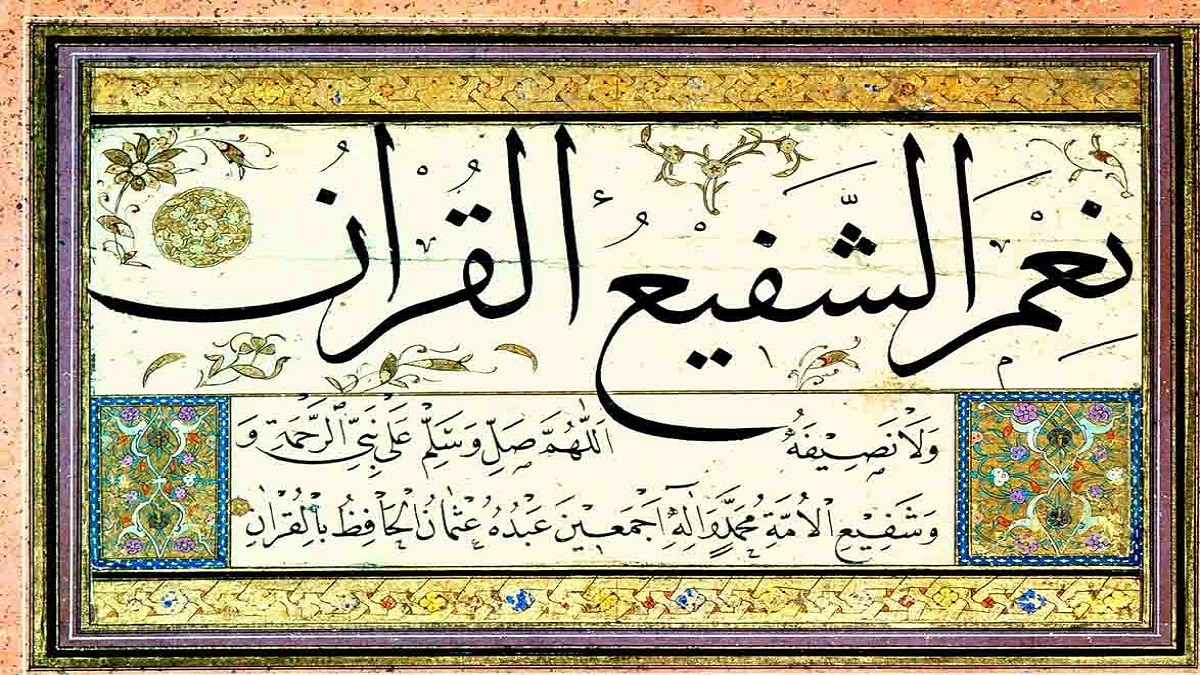 نِعْمَ الشَّفِيعُ الْقُرْآنُ
وَلَا نَصِيفَهُ اَللّٰهُمَّ صَلِّ وَسَلِّمْ عَلٰى نَبِيِّ الرَّحْمَةِ وَ
وَشَفِيعِ الْاُمَّةِ مُحَمَّدٍ وَاٰلِهِ اَجْمَعِينَ عَبْدُهُ عُثْمَانُ الْحَافِظُ بِالْقُرْاٰنِ